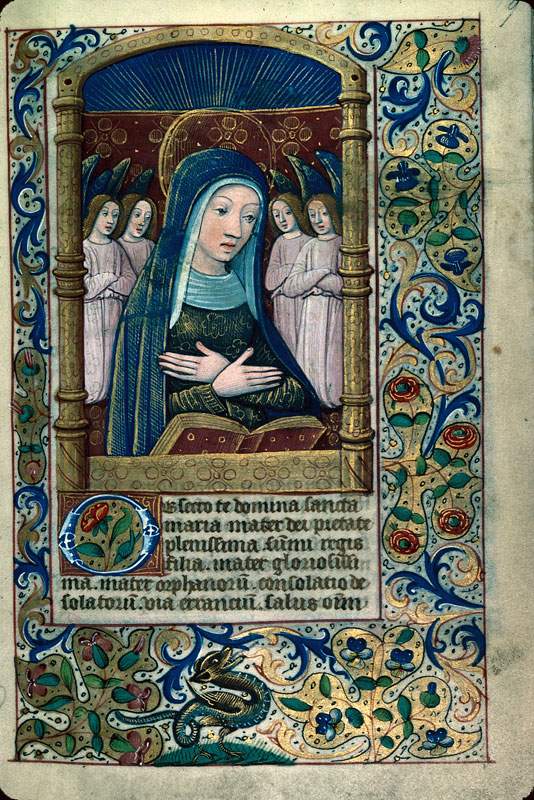 Obsecro te domina sancta
maria mater dei pietate
plenissima. sūmi regis
filia. mater gloriosissi
ma. mater orphanorū. consolatio de
solatorū. via erranciū. salus oīm